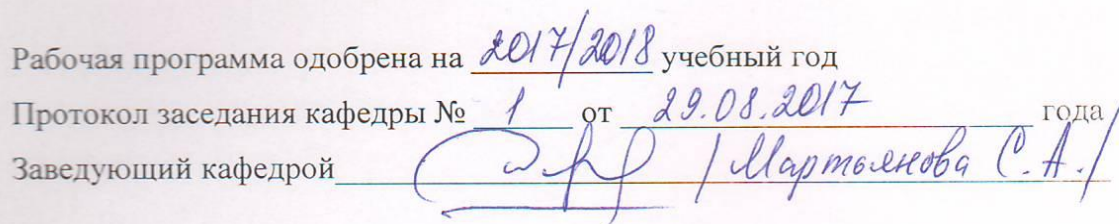 Рабочая программа одобрена на 2017/2018 учебный год
Протокол заседания кафедры № 1 от 29.08.2017 года
Заведующий кафедрой / Мартьянова С.А./